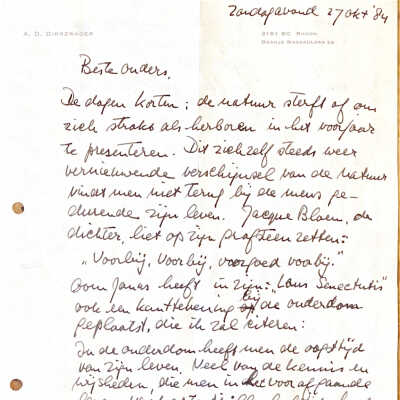 Zondagavond 27 okt '84
A. D. DIRKZWAGER
3161 BC RHOON
ORANJE NASSAULAAN 28
Beste ouders,
De dagen korten; de natuur sterft af om
zich straks als herboren in het voorjaar
te presenteren. Dit zichzelf steeds weer
vernieuwende verschijnsel van de natuur
vindt men niet terug bij de mens ge-
durende zijn leven. Jacques Bloem, de
dichter, liet op zijn grafsteen zetten:
"Voorbij, voorbij, voorgoed voorbij."
Oom Jonas heeft in zijn: "Laus Senectutis"
ook een kanttekening bij de ouderdom
geplaatst, die ik zal citeren:
In de ouderdom heeft men de oogsttijd
van zijn leven. Veel van de kennis en
wijsheden, die men in het voorafgaande